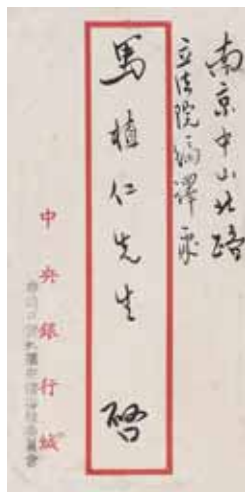 南京中山北路
立法院編譯處
馬植仁先生 啓
中央銀行緘